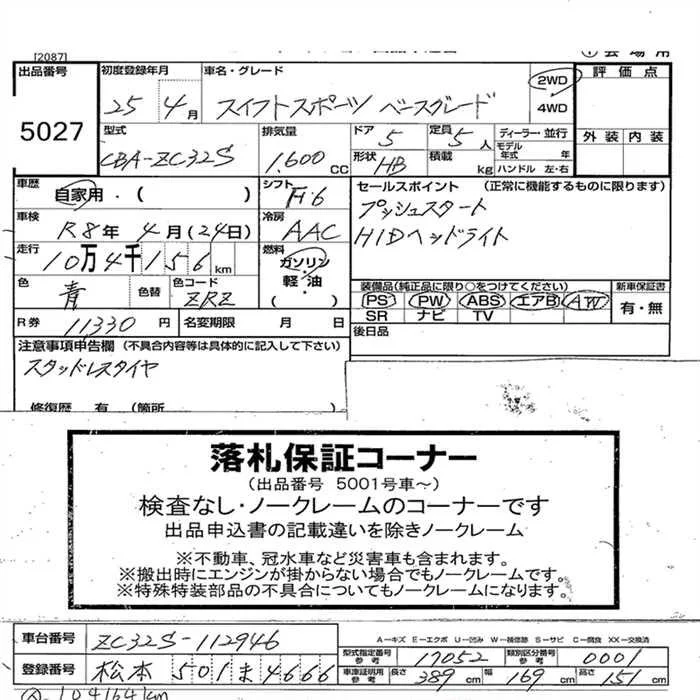 [2087]
出品番号
5027
初度登録年月
25年4月
車名・グレード
スイフトスポーツ ベースグレード
2WD
4WD
評価点
外装 内装
型式
CBA-ZC32S
排気量
1.600 CC
ドア 5
形状 HB
定員 5人
積載 kg
ディーラー・並行
モデル年式 年
ハンドル 左・右
車歴
自家用・( )
シフト F・6
車検
R8年4月(24日)
冷房 AAC
走行
10万4千156km
燃料
ガソリン・
軽・油・
( )
色
青
色替
色コード
ZRZ
R券 11330円
名変期限 月 日
セールスポイント (正常に機能するものに限ります)
プッシュスタート
HIDヘッドライト
装備品(純正品に限り○をつけてください)
PS PW ABS エアB AW
SR ナビ TV
新車保証書
有・無
後日品
注意事項申告欄 (不具合内容等は具体的に記入して下さい)
スタッドレスタイヤ
修復歴 有 (箇所
落札保証コーナー
(出品番号 5001号車~)
検査なし・ノークレームのコーナーです
出品申込書の記載違いを除きノークレーム
※不動車、冠水車など災害車も含まれます。
※搬出時にエンジンが掛からない場合でもノークレームです。
※特殊特装部品の不具合についてもノークレームになります。
車台番号 ZC32S-112946
登録番号 松本 501 ま 4666
A－キズ E－エクボ U－凹み W－補修跡 S－サビ C－腐食 XX－交換済
型式指定番号 参考 17052
類別区分番号 参考 0001
車庫証明用 参考 長さ 389cm 幅 169cm 高さ 151cm
104164km